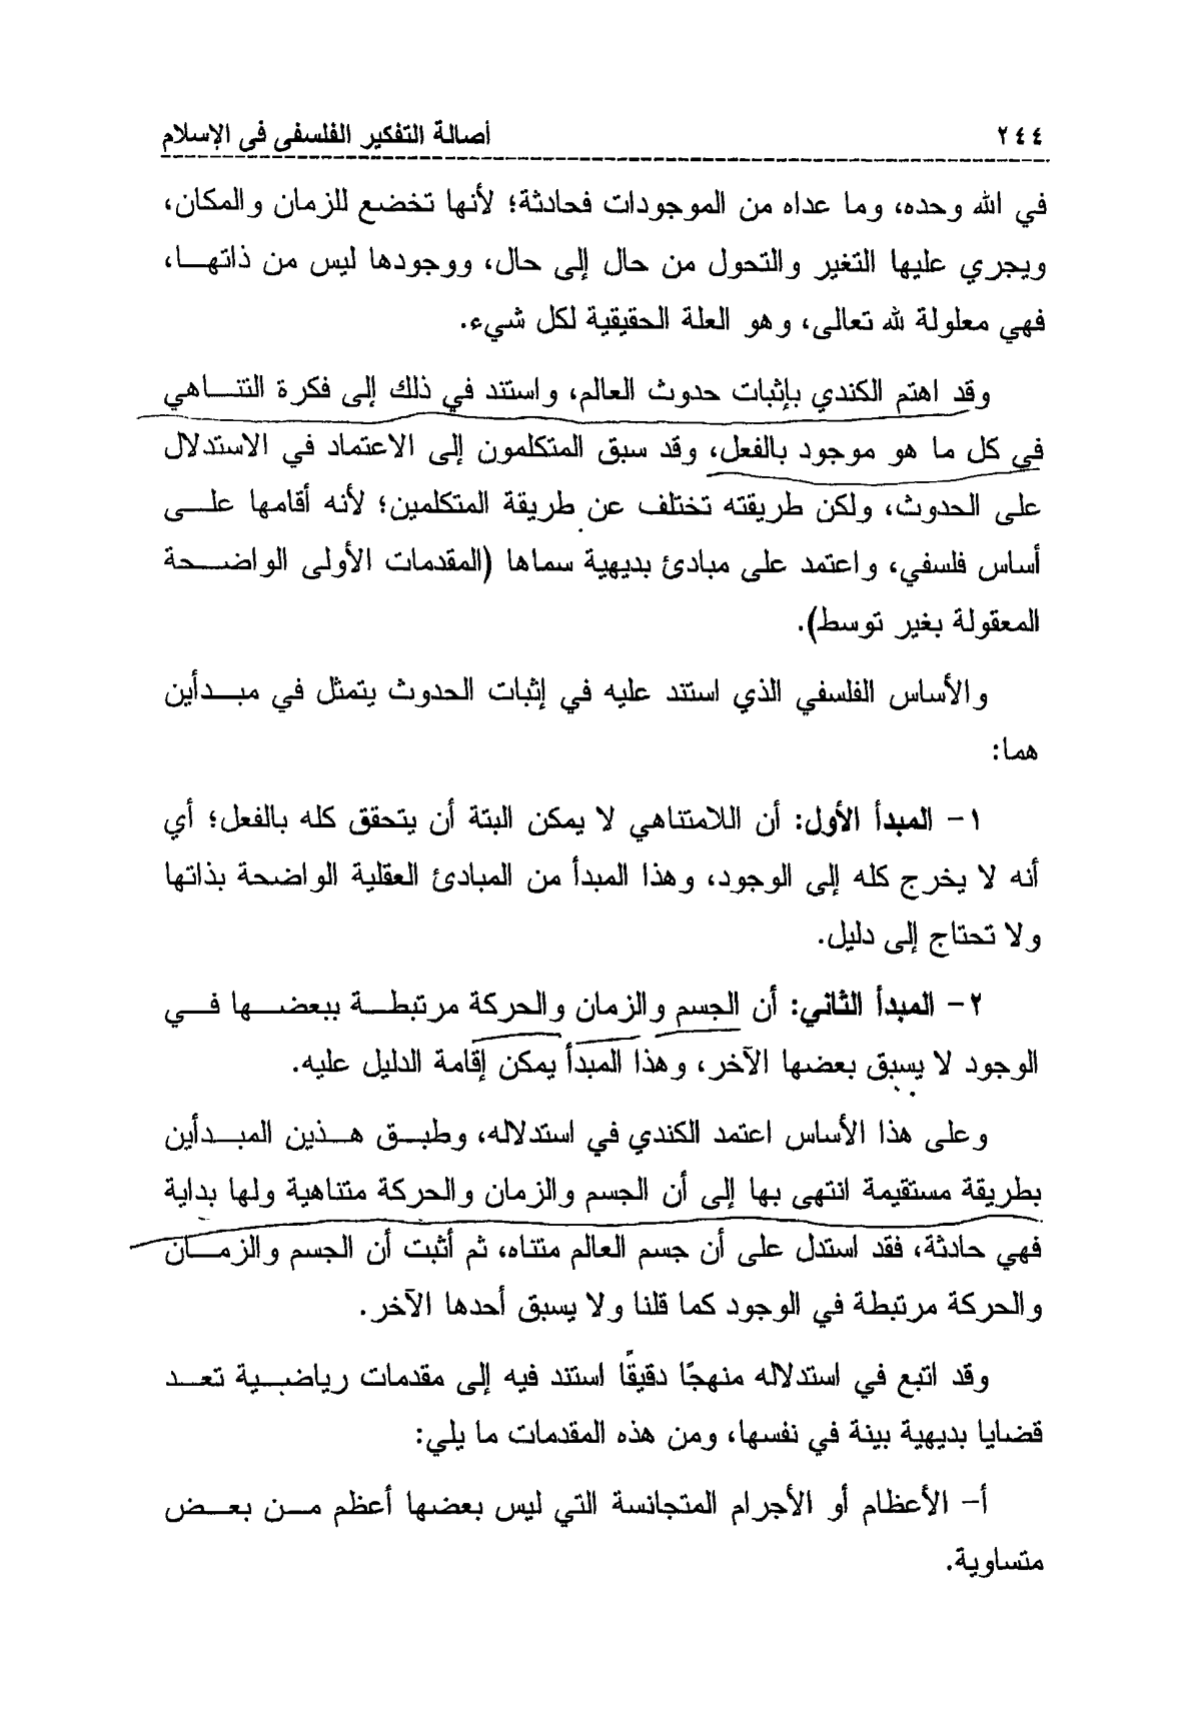 ٢٤٤ أصالة التفكير الفلسفى فى الإسلام
في الله وحده، وما عداه من الموجودات فحادثة؛ لأنها تخضع للزمان والمكان،
ويجري عليها التغير والتحول من حال إلى حال، ووجودها ليس من ذاتهـا،
فهي معلولة لله تعالى، وهو العلة الحقيقية لكل شيء.
وقد اهتم الكندي بإثبات حدوث العالم، واستند في ذلك إلى فكرة التنـاهي
في كل ما هو موجود بالفعل، وقد سبق المتكلمون إلى الاعتماد في الاستدلال
على الحدوث، ولكن طريقته تختلف عن طريقة المتكلمين؛ لأنه أقامها علـى
أساس فلسفي، واعتمد على مبادئ بديهية سماها (المقدمات الأولى الواضـحة
المعقولة بغير توسط).
والأساس الفلسفي الذي استند عليه في إثبات الحدوث يتمثل في مبـدأين
هما:
١- المبدأ الأول: أن اللامتناهي لا يمكن البتة أن يتحقق كله بالفعل؛ أي
أنه لا يخرج كله إلى الوجود، وهذا المبدأ من المبادئ العقلية الواضحة بذاتها
ولا تحتاج إلى دليل.
٢- المبدأ الثاني: أن الجسم والزمان والحركة مرتبطـة ببعضـها فـي
الوجود لا يسبق بعضها الآخر، وهذا المبدأ يمكن إقامة الدليل عليه.
وعلى هذا الأساس اعتمد الكندي في استدلاله، وطبـق هـذين المبـدأين
بطريقة مستقيمة انتهى بها إلى أن الجسم والزمان والحركة متناهية ولها بداية
فهي حادثة، فقد استدل على أن جسم العالم متناه، ثم أثبت أن الجسم والزمـان
والحركة مرتبطة في الوجود كما قلنا ولا يسبق أحدها الآخر.
وقد اتبع في استدلاله منهجًا دقيقًا استند فيه إلى مقدمات رياضـية تعـد
قضايا بديهية بينة في نفسها، ومن هذه المقدمات ما يلي:
أ- الأعظام أو الأجرام المتجانسة التي ليس بعضها أعظم مـن بعـض
متساوية.